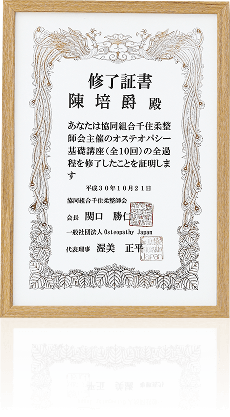 修了証書
陳 培爵 殿
あなたは協同組合千住柔整
師会主催のオステオパシー
基礎講座(全10回)の全過
程を修了したことを証明しま
す
平成30年10月21日
協同組合千住柔整師会
会長 関口 勝仁
一般社団法人Osteopathy Japan
代表理事 渥美 正平